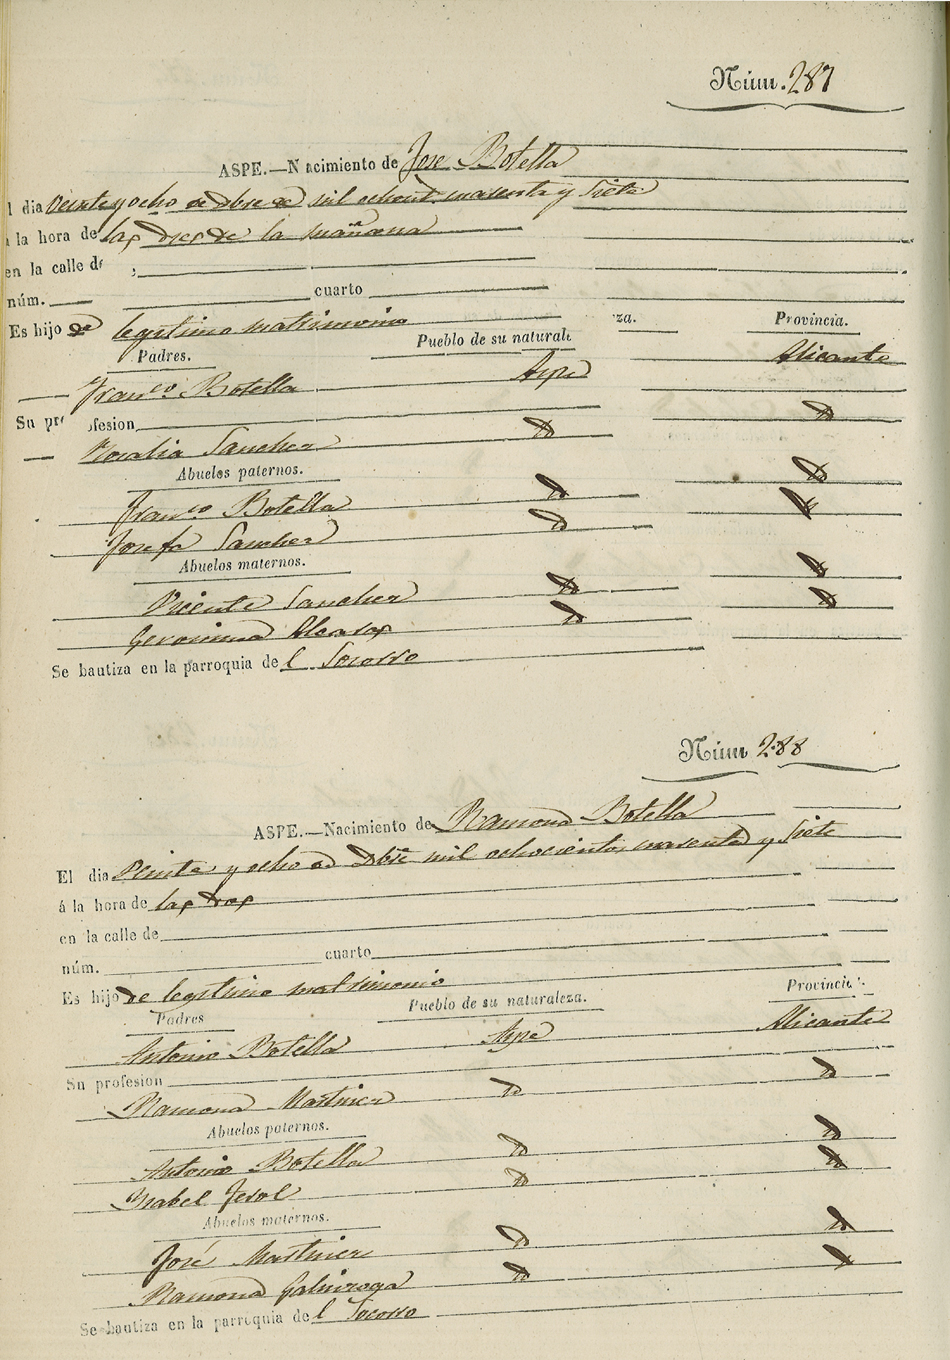 Núm. 287
ASPE.—Nacimiento de Jose Botella
l dia Veinte y ocho de Dbre de mil ochent cuarenta y Siete
á la hora de las dies de la mañana
en la calle de
núm. cuarto
Es hijo de legitimo matrimonio
Padres. Pueblo de su naturaleza. Provincia.
Franco Botella Aspe Alicante
Su profesion
Rosalia Sanchez do do
Abuelos paternos.
Franco Botella do do
Josefa Sanchez do do
Abuelos maternos.
Vicente Sanchez do do
Geronima Alcaraz do do
Se bautiza en la parroquia del Socorro
Núm 288
ASPE.—Nacimiento de Ramona Botella
El dia Veinte y ocho de Dbre mil ochocientos cuarenta y Siete
á la hora de las dos
en la calle de
núm. cuarto
Es hijo de legitimo matrimonio
Padres Pueblo de su naturaleza. Provincia.
Antonio Botella Aspe Alicante
Su profesion
Ramona Martinez do do
Abuelos paternos.
Antonio Botella do do
Ysabel Jerol do do
Abuelos maternos.
José Martinez do do
Ramona Galinzoga do do
Se bautiza en la parroquia del Socorro